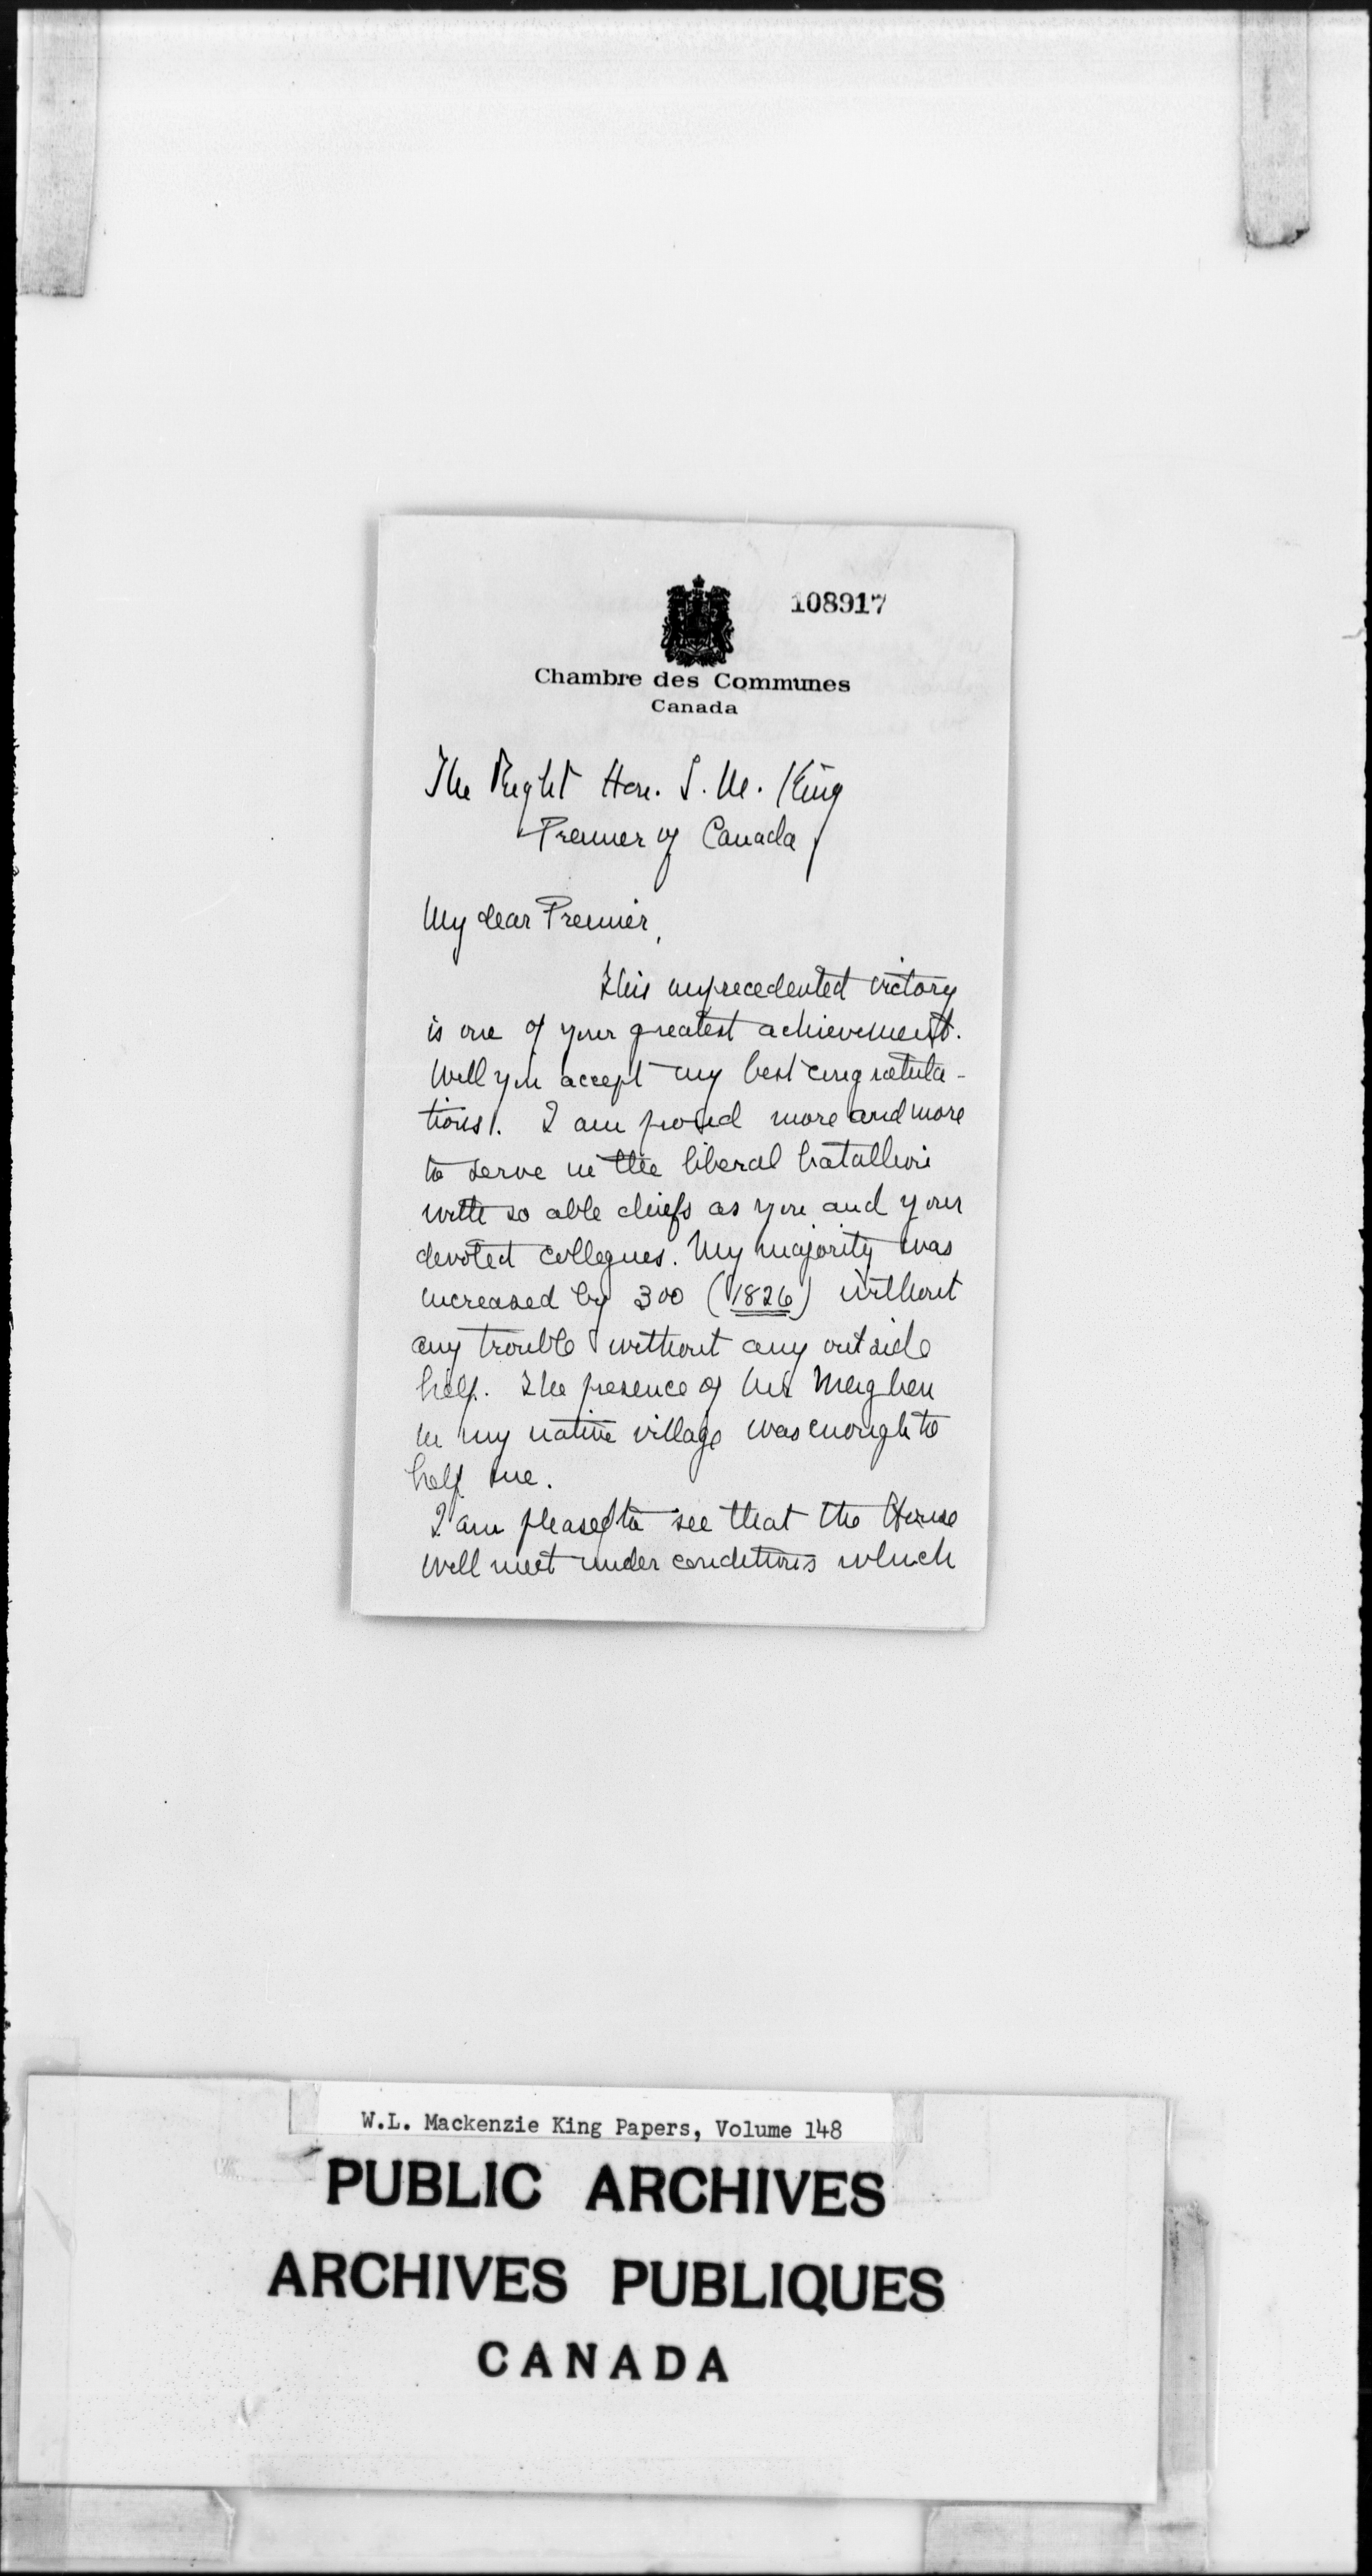 108917
Chambre des Communes
Canada
The Right Hon. S. M. King
Premier of Canada
My dear Premier,
This unprecedented victory
is one of your greatest achievement.
Will you accept my best congratula-
tions!. I am proud more and more
to serve in the liberal batallion
with so able chiefs as you and your
devoted collegues. My majority was
increased by 300 (1826) without
any trouble & without any outside
help. The presence of Mr Meighen
in my native village was enough to
help me.
I am pleased to see that the House
will meet under conditions which
W.L. Mackenzie King Papers, Volume 148
PUBLIC ARCHIVES
ARCHIVES PUBLIQUES
CANADA